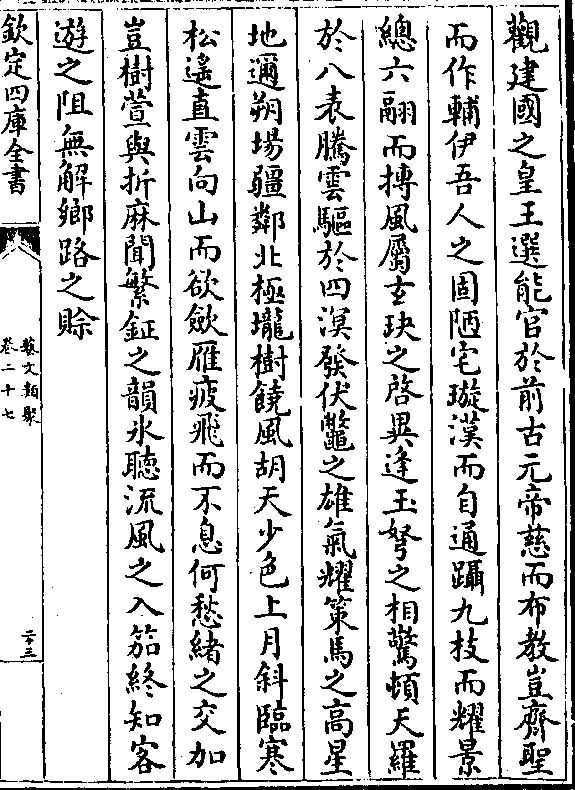 觀建國之皇王選能官於前古元帝慈而布教豈齊聖
而作輔伊吾人之固陋宅璇漢而自通躡九枝而耀景
總六翮而摶風屬玄玦之啓異逢玉弩之相驚頓天羅
於八表騰雲驅於四溟發伏鼈之雄氣耀策馬之高星
地邇朔場疆鄰北極壠樹饒風胡天少色上月斜臨寒
松遙直雲向山而欲斂雁疲飛而不息何愁緒之交加
豈樹萱與折麻聞繁鉦之韻冰聽流風之入笳終知客
遊之阻無解鄉路之賖
欽定四庫全書
藝文類聚
卷二十七
二十三